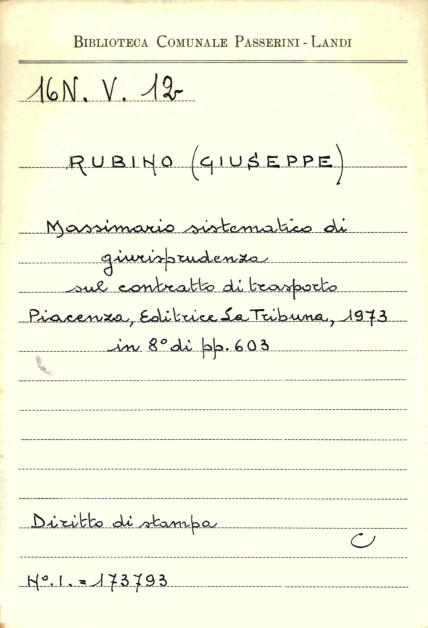 BIBLIOTECA COMUNALE PASSERINI - LANDI
16N. V. 12
RUBINO (GIUSEPPE)
Massimario sistematico di
giurisprudenza
sul contratto di trasporto
Piacenza, Editrice La Tribuna, 1973
in 8° di pp. 603
Diritto di stampa
C
N°. I. = 173793